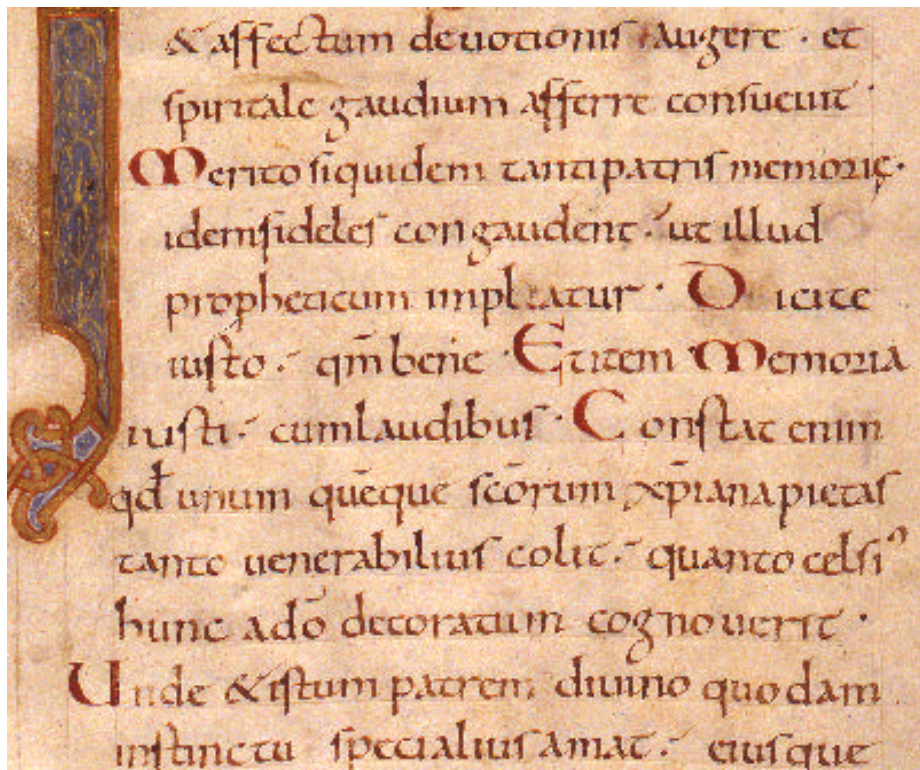 & affectum deuotionis augere · et
spiritale gaudium afferre consueuit ·
Merito siquidem tanti patris memorię ·
idem fideles congaudent · ut illud
propheticum impleatur · Dicite
iusto · qm̄ bene · Et item Memoria
iusti · cum laudibus · Constat enim
qđ unum quęque scōrum xp̄iana pietas
tanto uenerabilius colit · quanto celsi⁹
hunc a dō decoratum cognouerit ·
Unde & istum patrem diuino quodam
instinctu specialius amat · eiusque